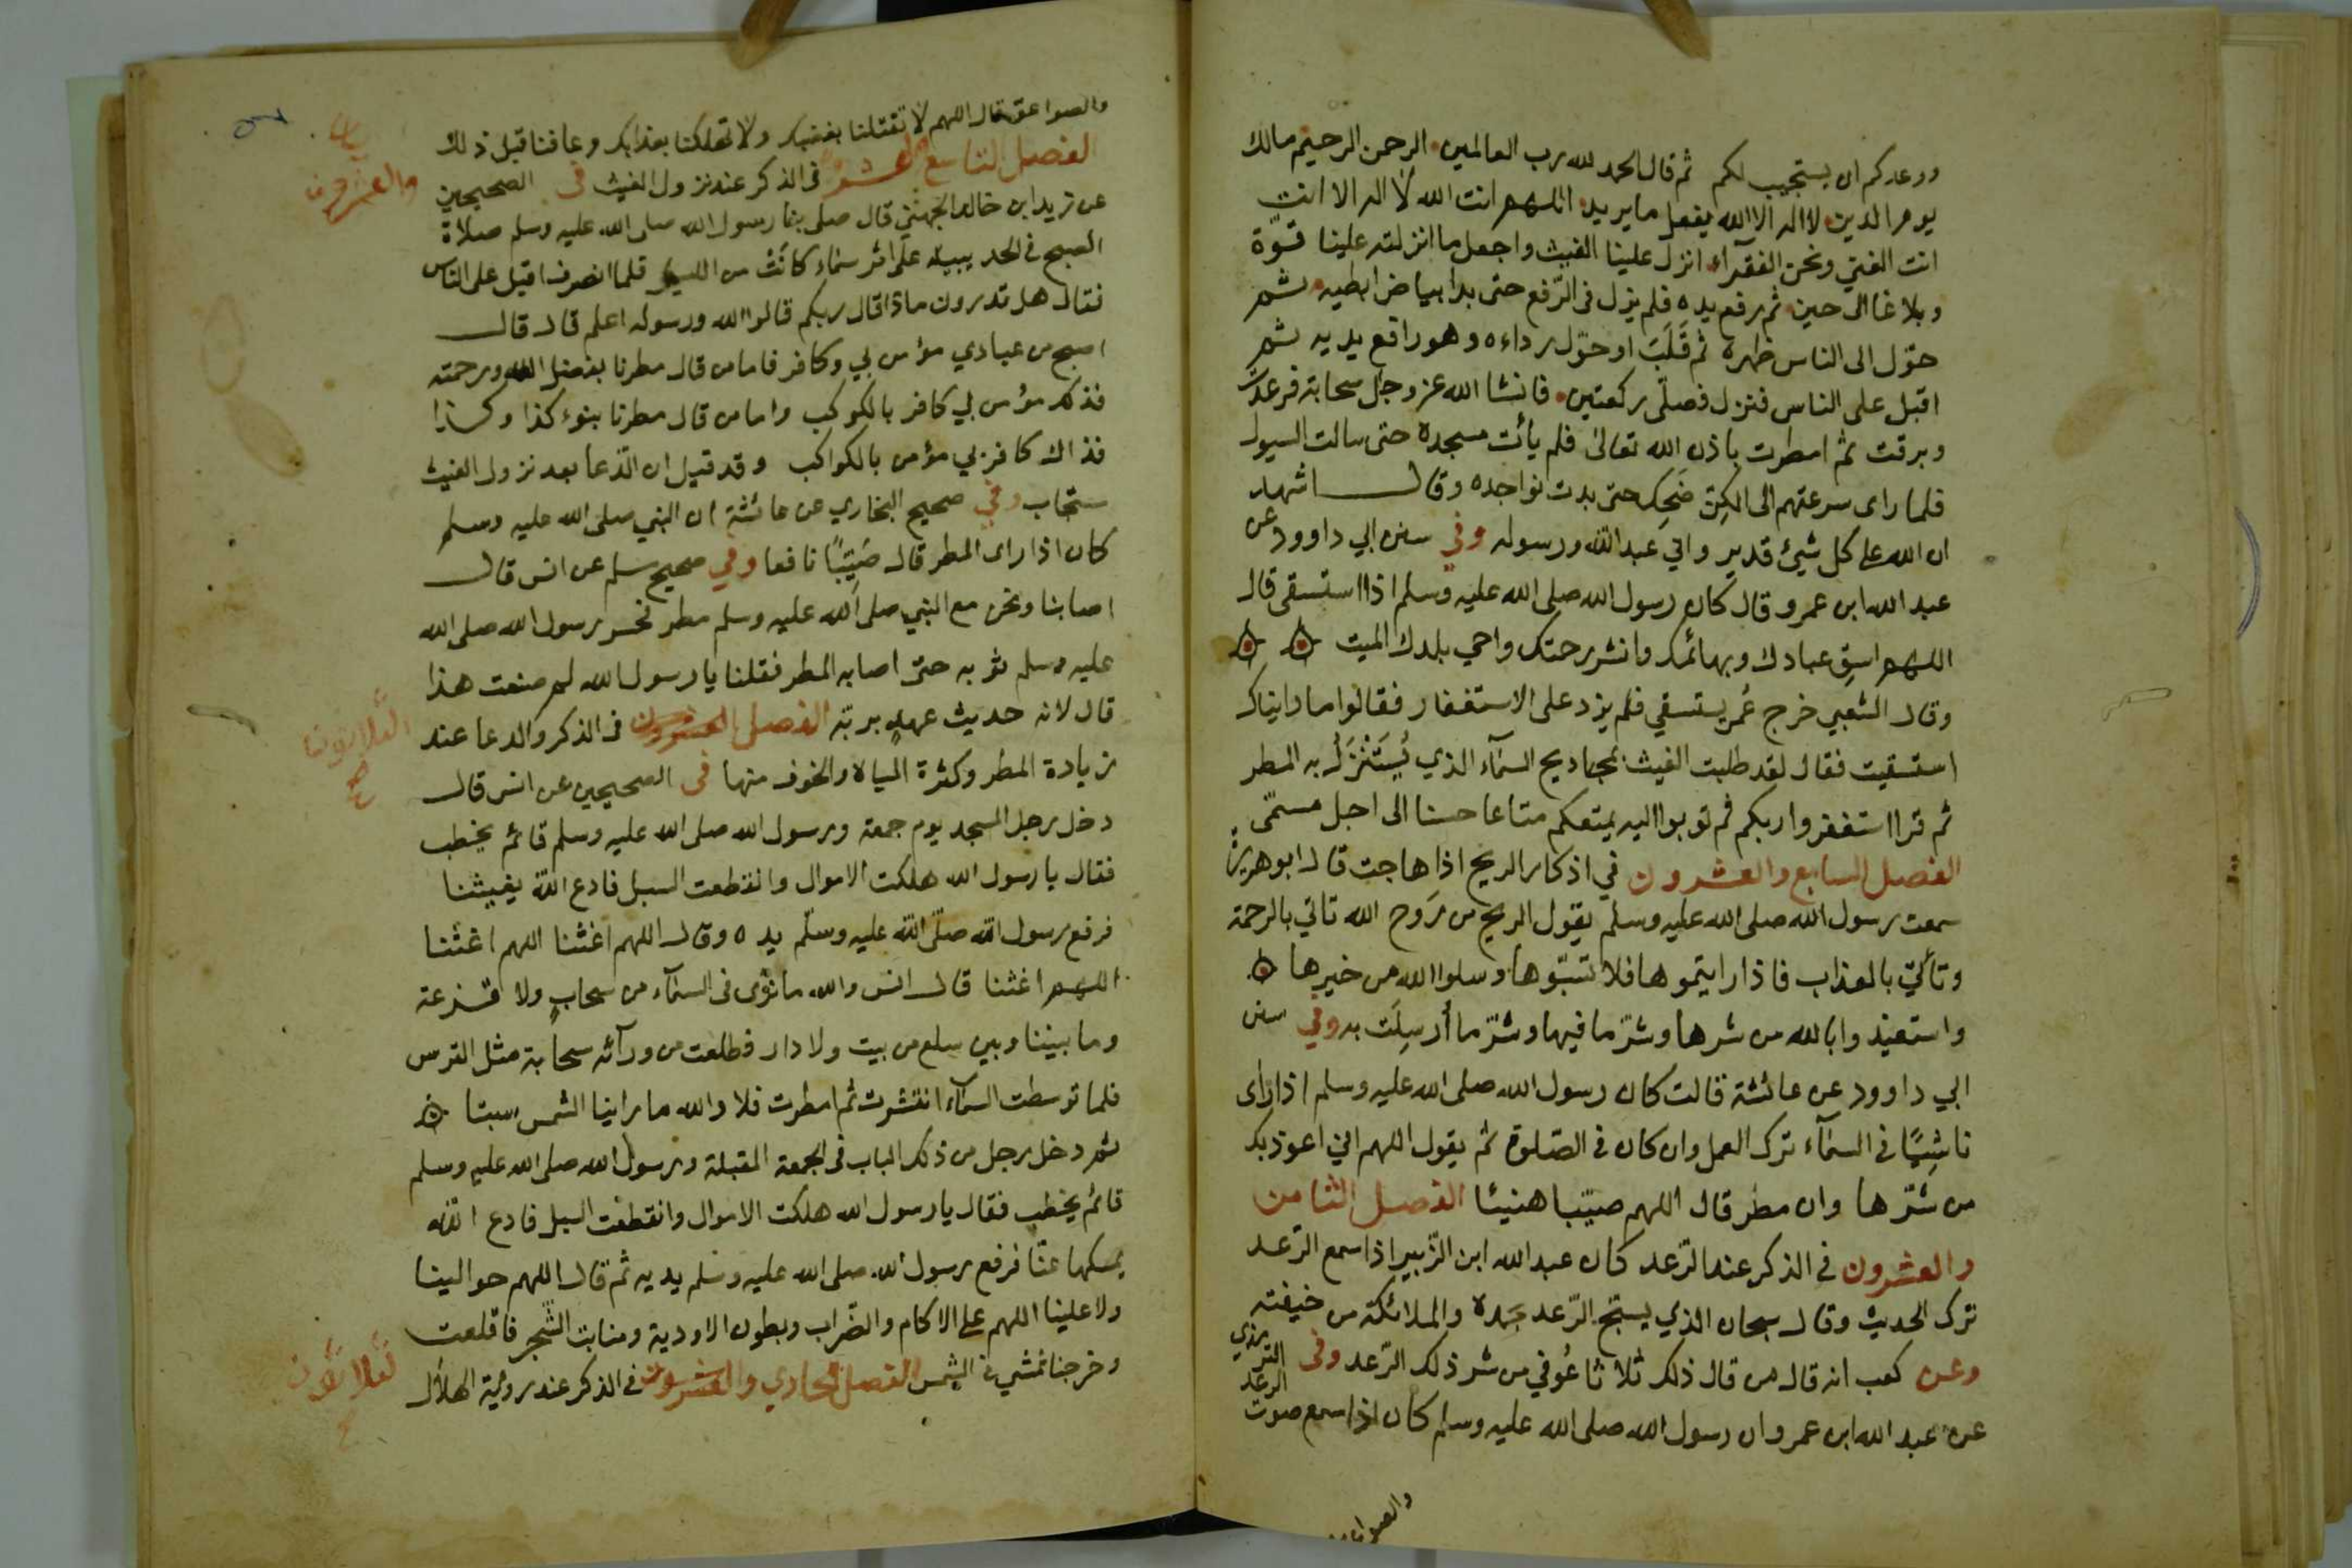 ووعدكم ان يستجيب لكم ثم قال الحمد لله رب العالمين الرحمن الرحيم مالك
يوم الدين لا اله الا الله يفعل ما يريد اللهم انت الله لا اله الا انت
انت الغني ونحن الفقرآء انزل علينا الغيث واجعل ما انزلته علينا قوّة
وبلاغا الى حين ثم رفع يده فلم يزل في الرّفع حتى بدا بياض ابطيه ثم
حوّل الى الناس ظهره ثم قَلَبَ او حوّل رداءه وهو رافع يديه ثم
اقبل على الناس فنزل فصلّى ركعتين فانشا الله عز وجل سحابة فرعدت
وبرقت ثم امطرت باذن الله تعالى فلم يأت مسجده حتى سالت السيول
فلما راى سرعتهم الى الكِنّ ضَحِك حتى بدت نواجده وقال اشهد
ان الله على كل شيئ قدير واني عبد الله ورسوله وفي سنن ابي داوود عن
عبد الله ابن عمرو قال كان رسول الله صلى الله عليه وسلم اذا استسقى قال
اللهم اسقِ عبادك وبهائمك وانشر رحمتك واحي بلدك الميت
وقال الشعبي خرج عُمر يستسقي فلم يزد على الاستغفار فقالوا ما رايناك
استسقيت فقال لقد طلبت الغيث بمجاديح السمآء الذي يُسْتَنْزَلُ به المطر
ثم قرا استغفروا ربكم ثم توبوا اليه يمتعكم متاعا حسنا الى اجل مسمّى
الفصل السابع والعشرون في اذكار الريح اذا هاجت قال ابو هريرة
سمعت رسول الله صلى الله عليه وسلم يقول الريح من رَوح الله تاتي بالرحمة
وتأتي بالعذاب فاذا رايتموها فلا تسبّوها وسلوا الله من خيرها
واستعيذوا بالله من شرها وشرّ ما فيها وشرّ ما أُرسِلَت به وفي سنن
ابي داوود عن عائشة قالت كان رسول الله صلى الله عليه وسلم اذا راى
ناشِيًا في السمآء ترك العمل وان كان في الصّلوة ثم يقول اللهم اني اعوذ بك
من شرّها وان مطر قال اللهم صيّبا هنيئا الفصل الثامن
والعشرون في الذكر عند الرّعد كان عبد الله ابن الزّبير اذا سمع الرّعد
ترك الحديث وقال سبحان الذي يسبّح الرّعد بحمده والملائكة من خيفته
وعن كعب انه قال من قال ذلك ثلاثا عُوفي من شر ذلك الرّعد وفى الترمذي
عن عبد الله ابن عمر وان رسول الله صلى الله عليه وسلم كان اذا سمع صوت الرعد
والصواعق
والصواعق قال اللهم لا تقتلنا بغضبك ولا تهلكنا بعذابك وعافنا قبل ذلك
الفصل التاسع العشرون في الذكر عند نزول الغيث في الصحيحين
والعشرون
عن زيد ابن خالد الجهني قال صلى بنا رسول الله صلى الله عليه وسلم صلاة
الصبح في الحديبية على اثر سماء كانَتْ من الليل فلما انصرف اقبل على الناس
فقال هل تدرون ماذا قال ربكم قالوا الله ورسوله اعلم قال قال
اصبح من عبادي مؤمن بي وكافر فاما من قال مطرنا بفضل الله ورحمته
فذلك مؤمن بي كافر بالكوكب واما من قال مطرنا بنوء كذا وكذا
فذاك كافر بي مؤمن بالكواكب وقد قيل ان الدّعا بعد نزول الغيث
مستجاب وفي صحيح البخاري عن عائشة ان النبي صلى الله عليه وسلم
كان اذا راى المطر قال صَيِّبًا نافعا وفي صحيح مسلم عن انس قال
اصابنا ونحن مع النبي صلى الله عليه وسلم مطر فحسر رسول الله صلى الله
عليه وسلم ثوبه حتى اصابه المطر فقلنا يا رسول الله لم صنعت هذا
قال لانه حديث عهدٍ بربّه الفصل العشرون في الذكر والدعا عند
الثلاثون
صح
زيادة المطر وكثرة المياه والخوف منها في الصحيحين عن انس قال
دخل رجل المسجد يوم جمعة ورسول الله صلى الله عليه وسلم قائم يخطب
فقال يا رسول الله هلكت الاموال وانقطعت السبل فادع الله يغيثنا
فرفع رسول الله صلّى الله عليه وسلّم يده وقال اللهم اغثنا اللهم اغثنا
اللهم اغثنا قال انس والله ما نرى في السمآء من سحابٍ ولا قزعة
وما بيننا وبين سلع من بيت ولا دار فطلعت من ورآئه سحابة مثل الترس
فلما توسطت السمآء انتشرت ثم امطرت فلا والله ما راينا الشمس سبتا
ثم دخل رجل من ذلك الباب في الجمعة المقبلة ورسول الله صلى الله عليه وسلم
قائم يخطب فقال يا رسول الله هلكت الاموال وانقطعت السبل فادع الله
يمسكها عنّا فرفع رسول الله صلى الله عليه وسلم يديه ثم قال اللهم حوالينا
ولا علينا اللهم على الاكام والضّراب وبطون الاودية ومنابت الشّجر فاقلعت
وخرجنا نمشي في الشمس الفصل الحادي والعشرون في الذكر عند روية الهلال
ثلاثون